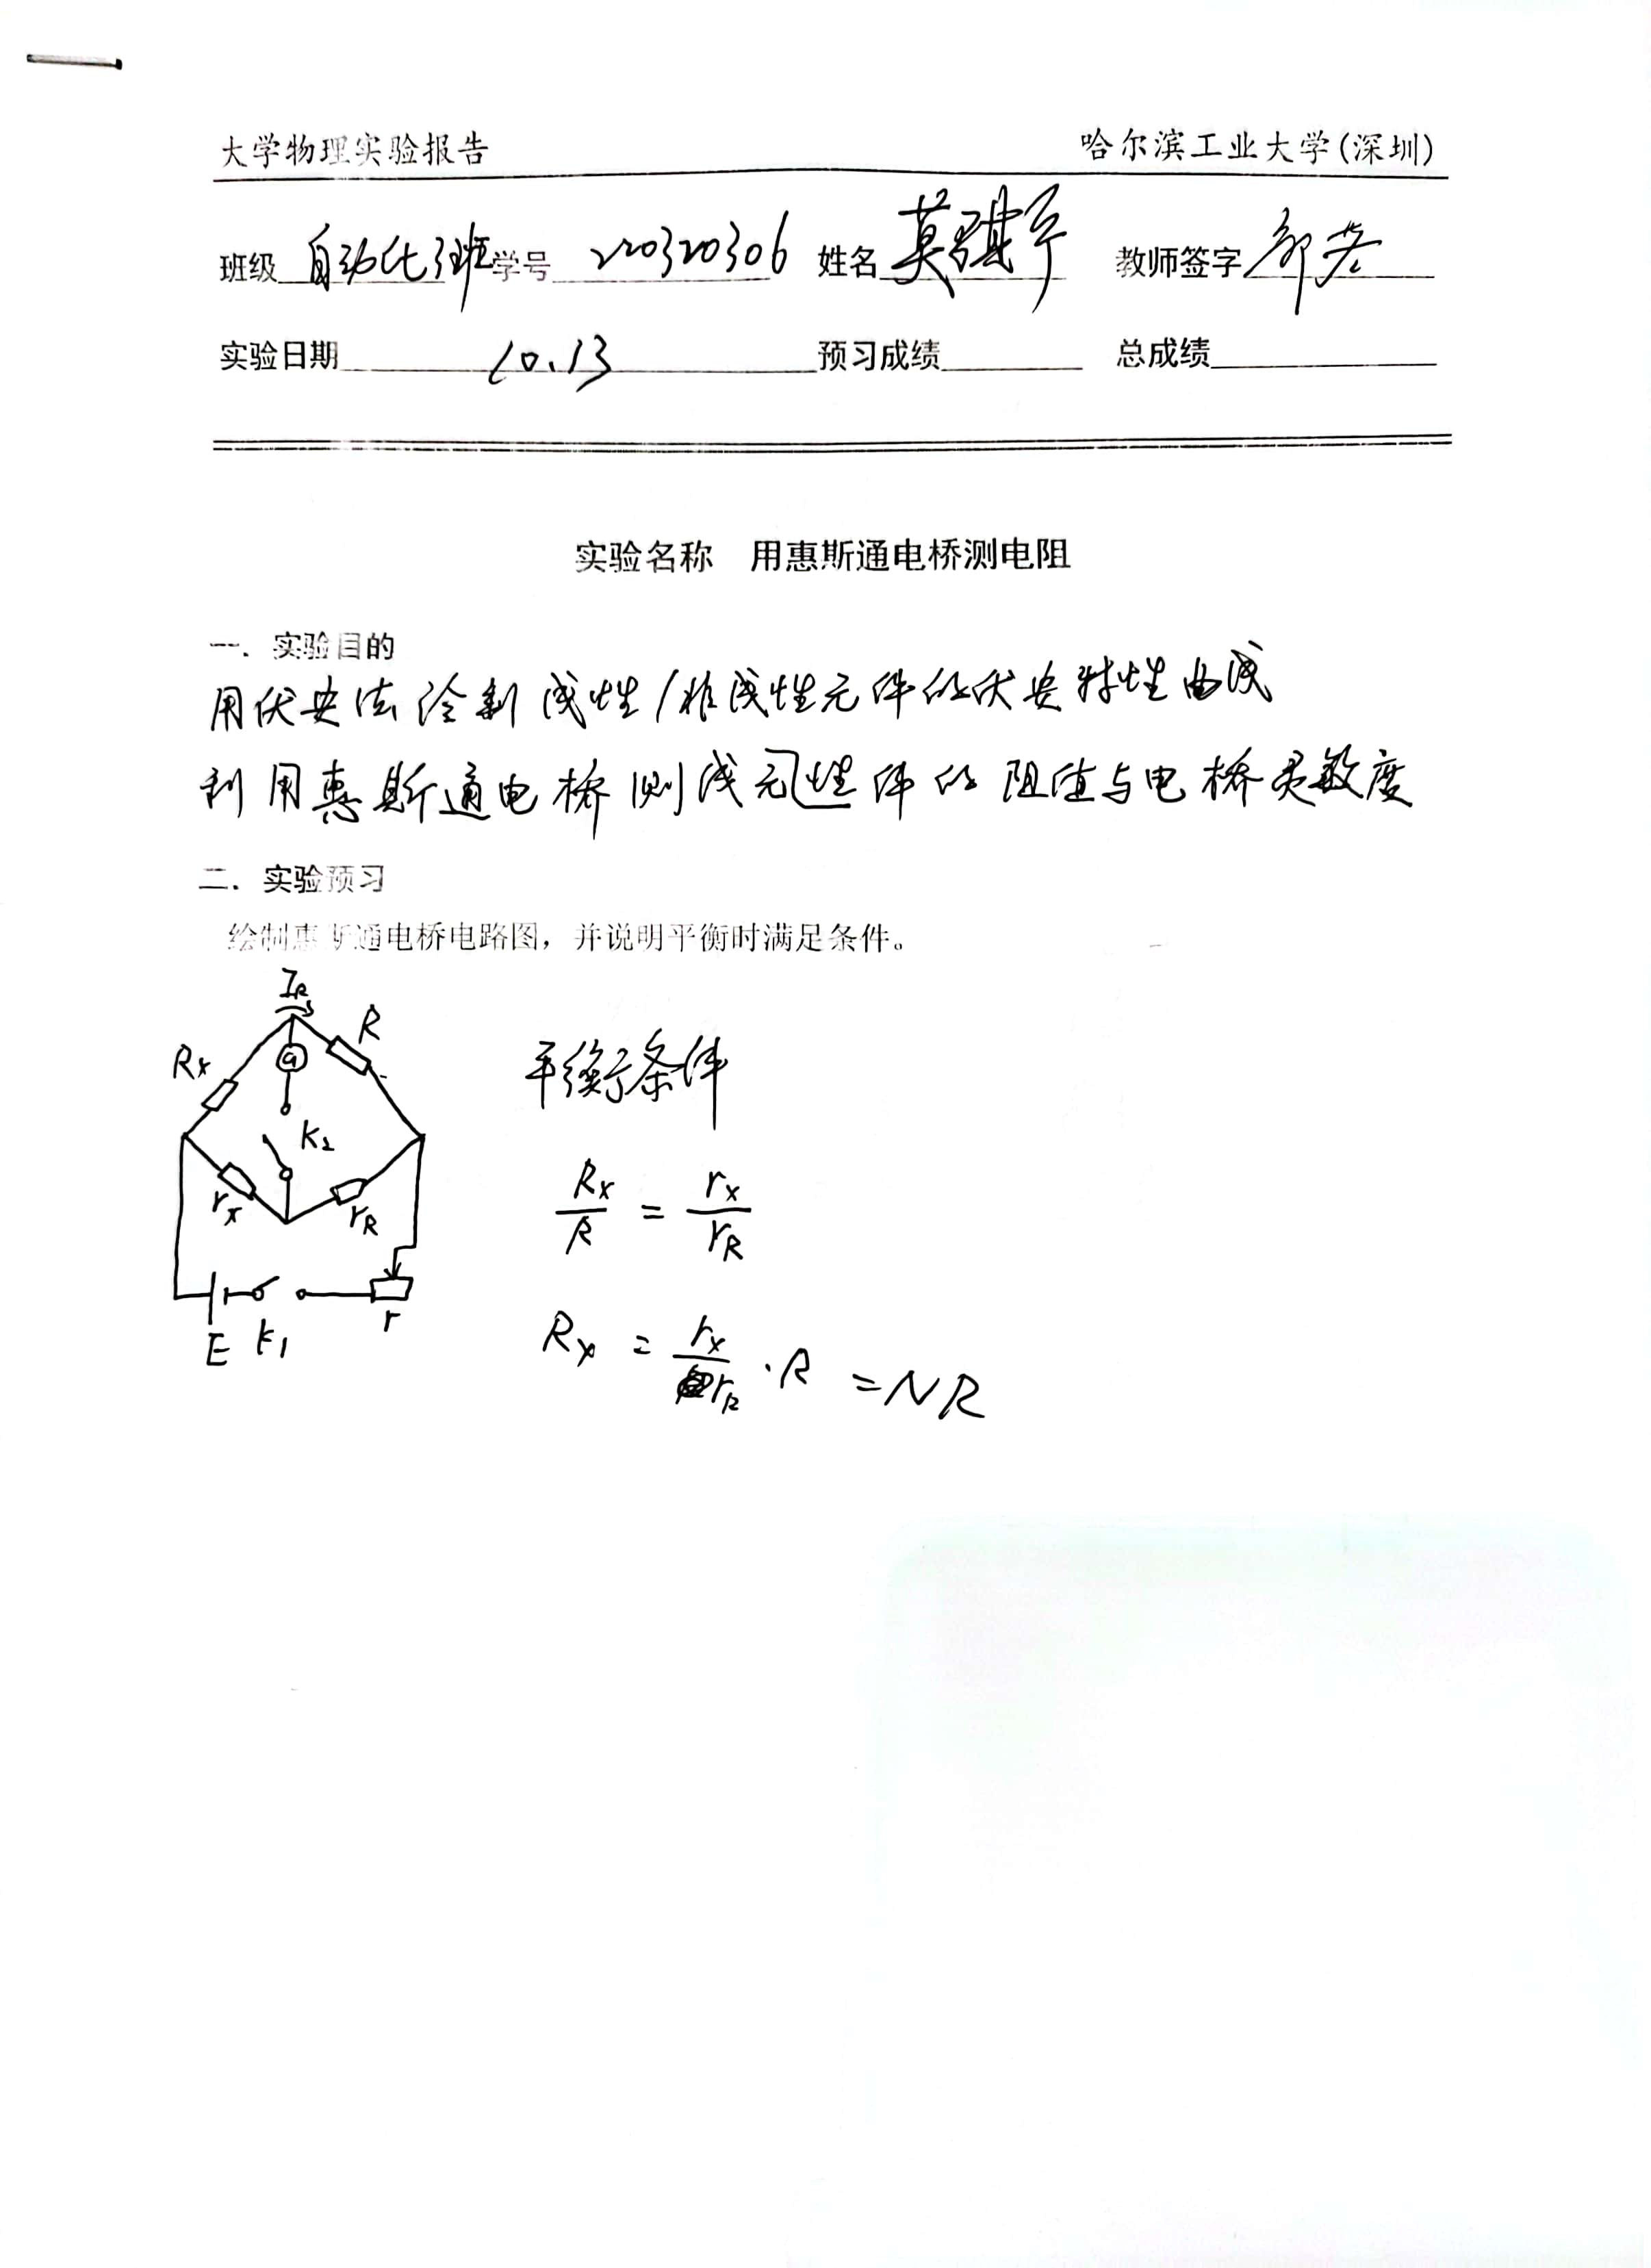 大学物理实验报告 哈尔滨工业大学(深圳)
班级 自动化3班 学号 220320306 姓名 莫琪 教师签字
实验日期 10.13 预习成绩 总成绩
实验名称 用惠斯通电桥测电阻
一. 实验目的
用伏安法 线性/非线性元件的伏安特性曲线
利用惠斯通电桥测线元性件的阻值与电桥灵敏度
二. 实验预习
绘制惠斯通电桥电路图，并说明平衡时满足条件。
R
Rx G
K2
rx rR
E K1 r
平衡条件
Rx/R = rx/rR
Rx = rx/rR · R = NR